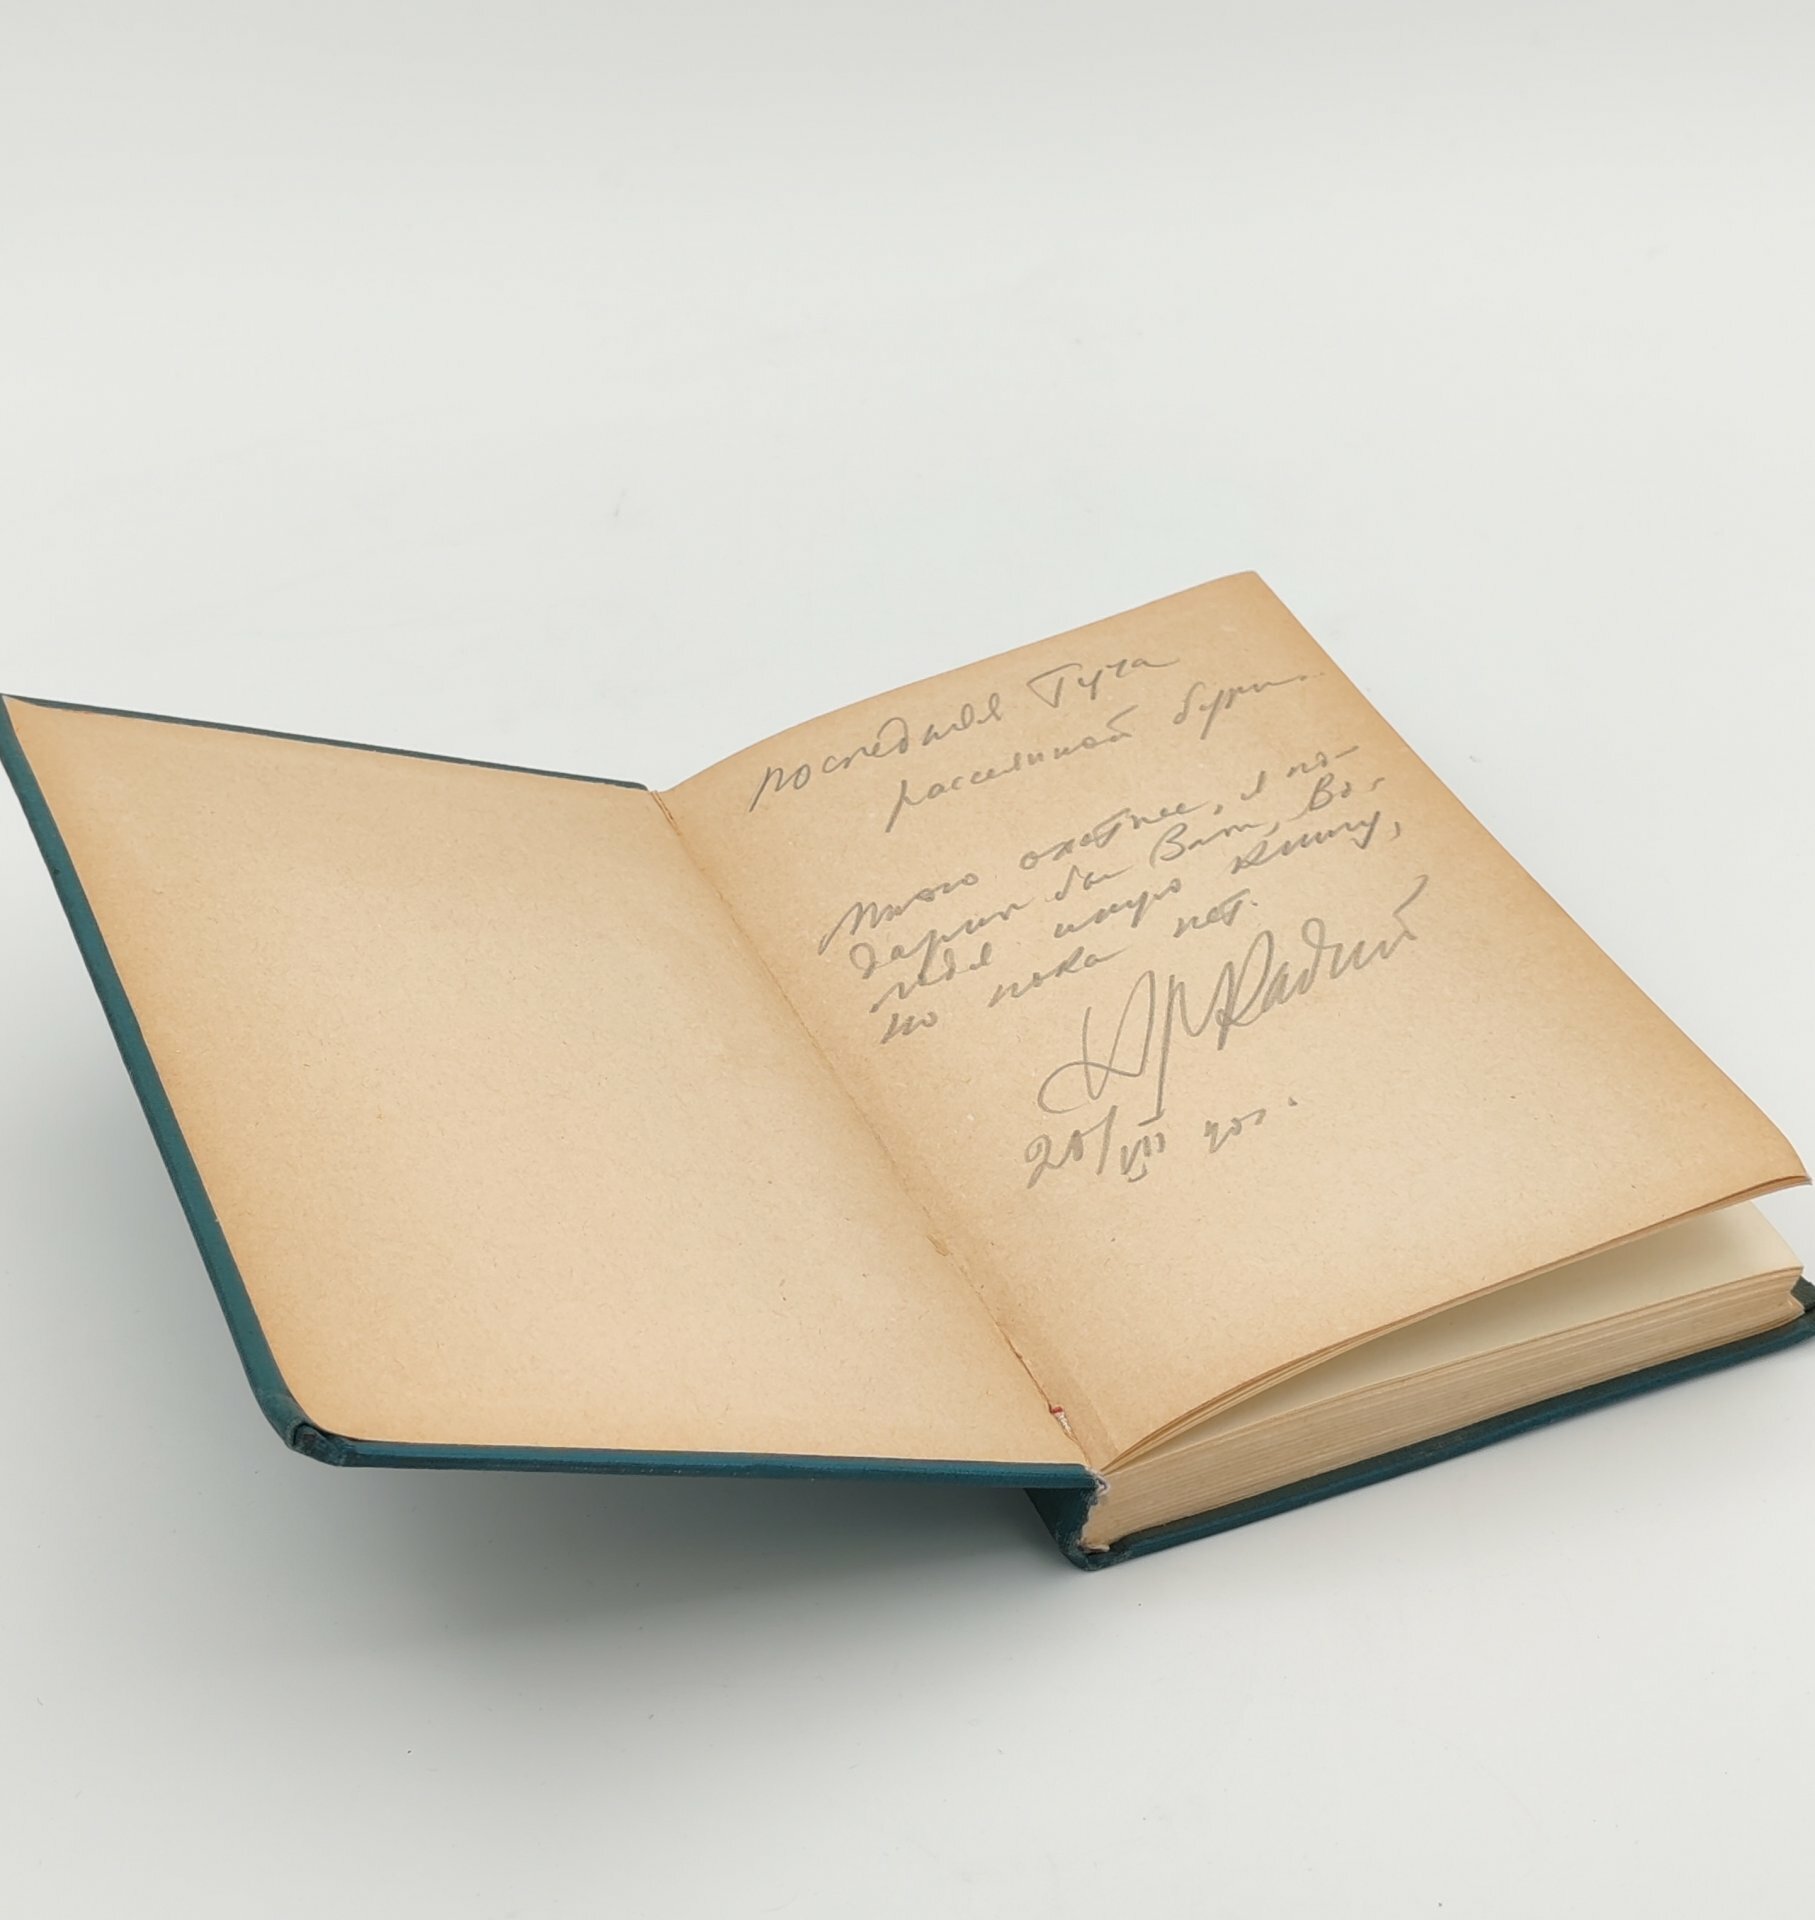 последняя Туча
рассеянной бури...
Много охотнее, я по-
дарил бы Вам, Во-
лодя иную книгу,
но пока нет.
Аркадий
20/VIII 40г.